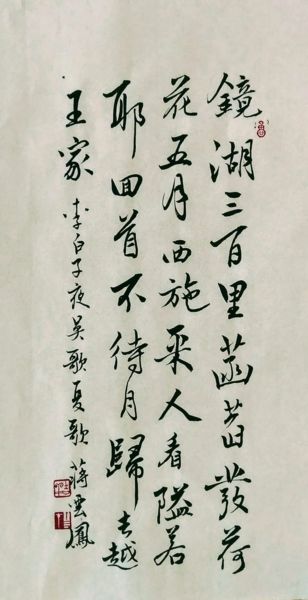 鏡湖三百里菡萏發荷
花五月西施采人看隘若
耶回首不待月歸去越
王家 李白子夜吴歌夏歌 蔣雲鳳